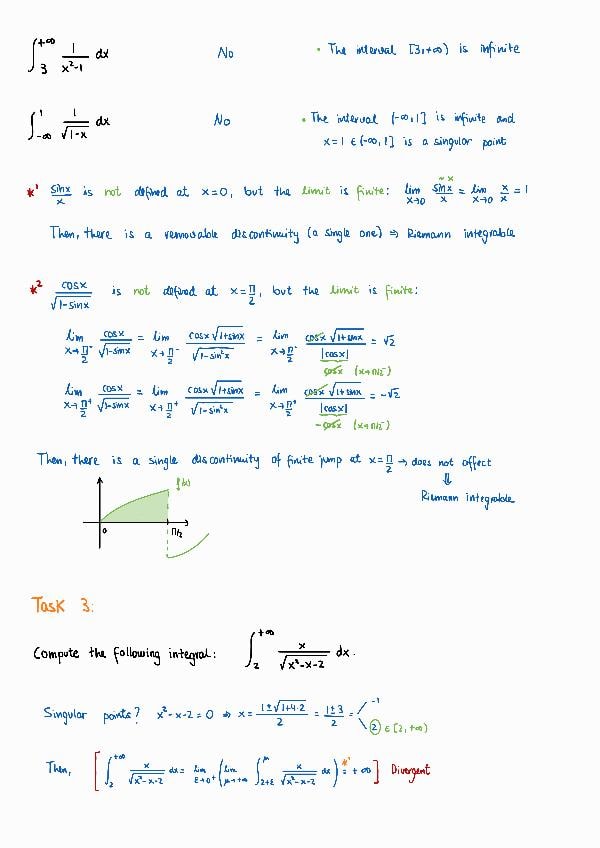 ∫_3^{+∞} 1/(x²-1) dx No • The interval [3,+∞) is infinite
∫_{-∞}^1 1/√(1-x) dx No • The interval (-∞,1] is infinite and
x=1 ∈ (-∞,1] is a singular point
*¹ sinx/x is not defined at x=0, but the limit is finite: lim_{x→0} sinx/x = lim_{x→0} x/x = 1
~x
Then, there is a removable discontinuity (a single one) ⇒ Riemann integrable
*² cosx/√(1-sinx) is not defined at x=π/2, but the limit is finite:
lim_{x→π/2⁻} cosx/√(1-sinx) = lim_{x→π/2⁻} cosx√(1+sinx)/√(1-sin²x) = lim_{x→π/2⁻} cosx√(1+sinx)/|cosx| = √2
cosx (x→π/2⁻)
lim_{x→π/2⁺} cosx/√(1-sinx) = lim_{x→π/2⁺} cosx√(1+sinx)/√(1-sin²x) = lim_{x→π/2⁺} cosx√(1+sinx)/|cosx| = -√2
-cosx (x→π/2⁺)
Then, there is a single discontinuity of finite jump at x=π/2 → does not affect
⇓
Riemann integrable
f(x)
0 π/2
Task 3:
Compute the following integral: ∫_2^{+∞} x/√(x²-x-2) dx.
Singular points? x²-x-2=0 ⇒ x = (1±√(1+4·2))/2 = (1±3)/2 = -1
2 ∈ [2,+∞)
Then, [∫_2^{+∞} x/√(x²-x-2) dx = lim_{ε→0⁺} (lim_{μ→+∞} ∫_{2+ε}^μ x/√(x²-x-2) dx) =*¹ +∞] Divergent